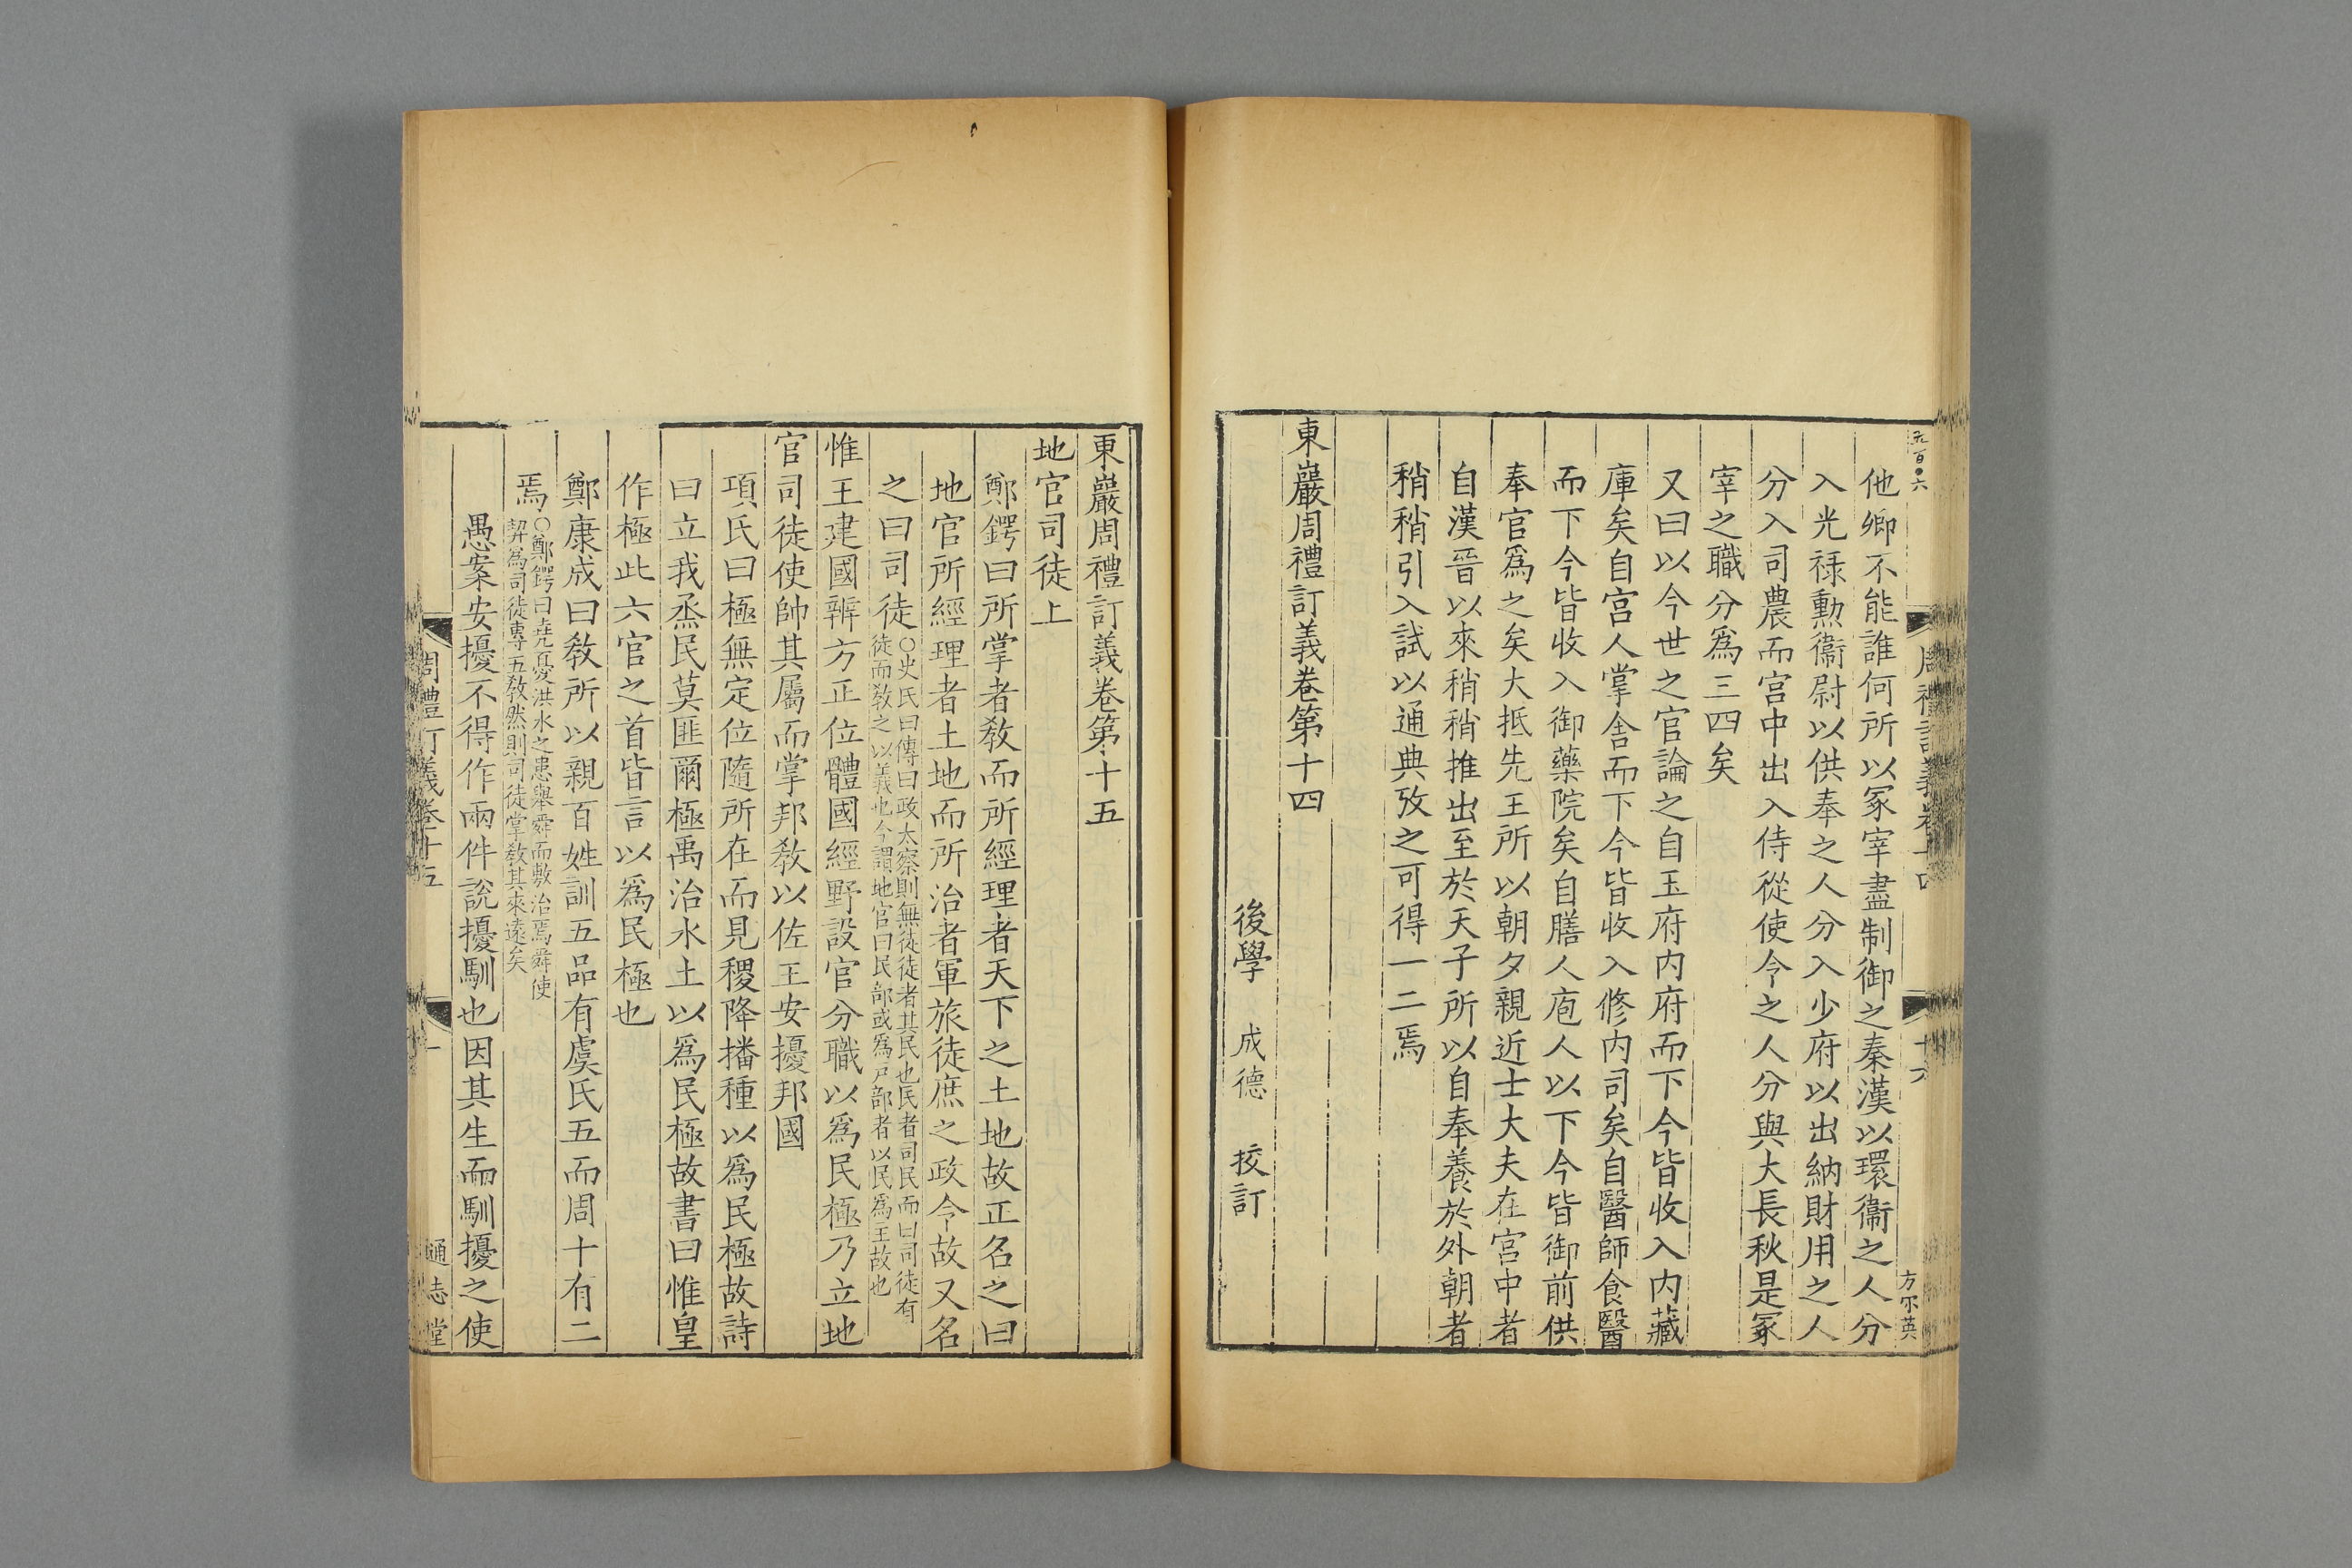 他卿不能誰何所以冢宰盡制御之秦漢以環衞之人分
入光祿勳衞尉以供奉之人分入少府以出納財用之人
分入司農而宫中出入侍從使令之人分與大長秋是冢
宰之職分爲三四矣
又曰以今世之官論之自玉府内府而下今皆收入内藏
庫矣自宫人掌舍而下今皆收入修内司矣自醫師食醫
而下今皆收入御藥院矣自膳人庖人以下今皆御前供
奉官爲之矣大抵先王所以朝夕親近士大夫在宫中者
自漢晉以來稍稍推出至於天子所以自奉養於外朝者
稍稍引入試以通典攷之可得一二焉
東巖周禮訂義卷第十四
後學 成德 挍訂
東巖周禮訂義卷第十五
地官司徒上
鄭鍔曰所掌者敎而所經理者天下之土地故正名之曰
地官所經理者土地而所治者軍旅徒庶之政令故又名
之曰司徒
○史氏曰傳曰政太察則無徒徒者其民也民者司民而曰司徒有
徒而敎之以義也今謂地官曰民部或爲戸部者以民爲王故也
惟王建國辨方正位體國經野設官分職以爲民極乃立地
官司徒使帥其屬而掌邦敎以佐王安擾邦國
項氏曰極無定位隨所在而見稷降播種以爲民極故詩
曰立我烝民莫匪爾極禹治水土以爲民極故書曰惟皇
作極此六官之首皆言以爲民極也
鄭康成曰敎所以親百姓訓五品有虞氏五而周十有二
焉
○鄭鍔曰堯憂洪水之患舉舜而敷治焉舜使
契爲司徒專五敎然則司徒掌敎其來遠矣
愚案安擾不得作兩件說擾馴也因其生而馴擾之使
周禮訂義卷十五
一
通志堂
五百○六
周禮訂義卷十四
十六
方尔英